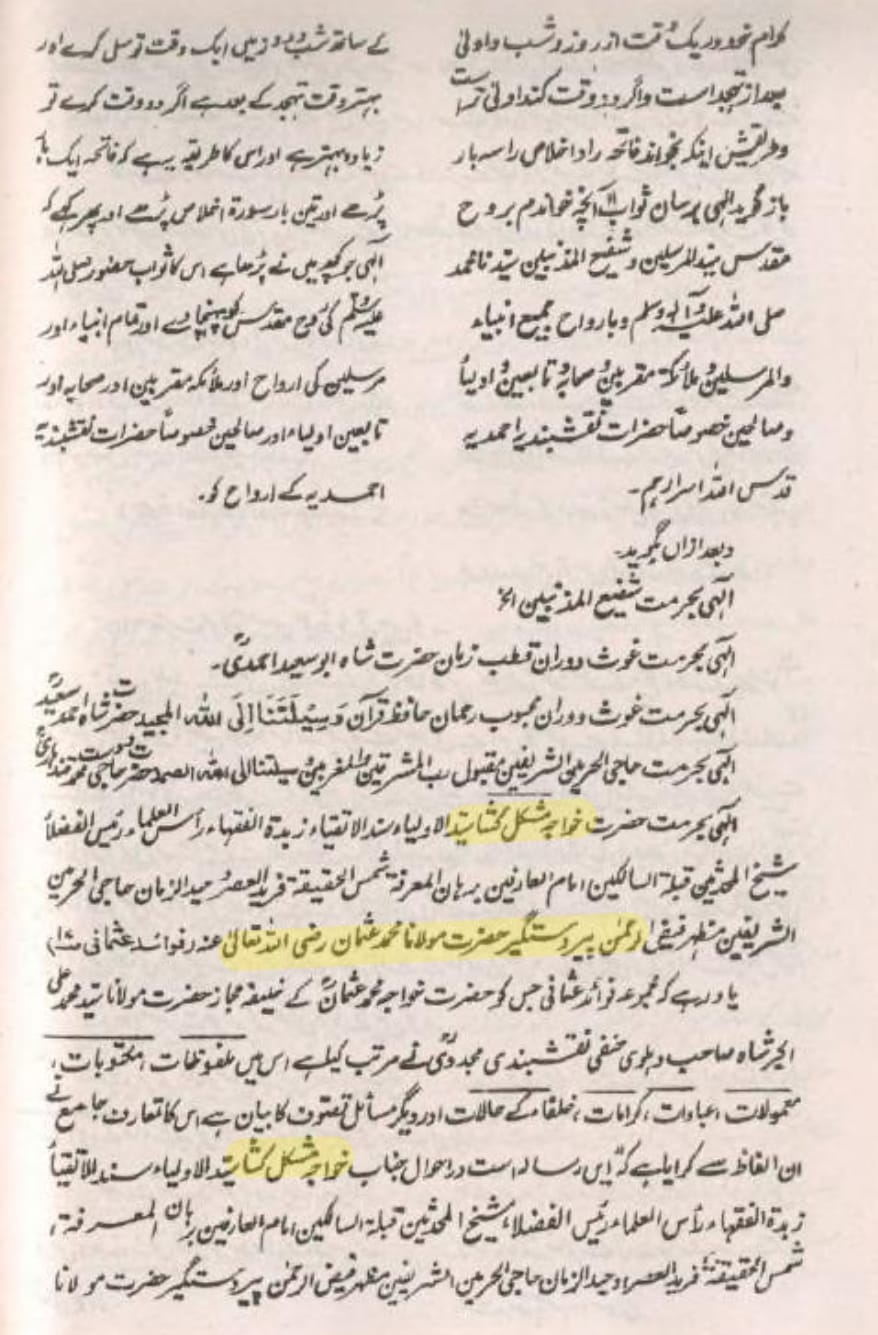 کرام نمودہ یک وقت از روز و شب و اولیٰ
بعد از تہجد است و اگر دو وقت کند اولیٰ تر است
و طریقش اینکہ بخواند فاتحہ را و اخلاص را سہ بار
باز گوید الٰہی برسان ثواب آنچہ خواندم بروح
مقدس سید المرسلین و شفیع المذنبین سیدنا محمد
صلی اللہ علیہ وآلہ وسلم و بارواح جمیع انبیاء
والمرسلین و ملائکۃ مقربین و صحابہ و تابعین و اولیأ
و صالحین خصوصاً حضرات نقشبندیہ احمدیہ
قدس اللہ اسرارہم۔
کے ساتھ شب و روز میں ایک وقت توسل کرے اور
بہتر وقت تہجد کے بعد ہے اگر دو وقت کرے تو
زیادہ بہتر ہے اور اس کا طریقہ یہ ہے کہ فاتحہ ایک بار
پڑھے اور تین بار سورۃ اخلاص پڑھے اور پھر کہے کہ
الٰہی جو کچھ میں نے پڑھا ہے اس کا ثواب حضور صلی اللہ
علیہ وسلم کی روح مقدس کو پہنچا دے اور تمام انبیاء اور
مرسلین کی ارواح اور ملائکہ مقربین اور صحابہ اور
تابعین اولیاء اور صالحین خصوصاً حضرات نقشبندیہ
احمدیہ کے ارواح کو۔
و بعد ازاں بگوید۔
الٰہی بحرمت شفیع المذنبین الخ
الٰہی بحرمت غوث دوران قطب زمان حضرت شاہ ابو سعید احمدیؒ۔
الٰہی بحرمت غوث دوران محبوب رحمان حافظ قرآن وَسِیْلَتَنَا اِلَی اللہ المجید حضرت شاہ احمد سعیدؒ
الٰہی بحرمت حاجی الحرمین الشریفین مقبول رب المشرقین والمغربین وسیلتنا الی اللہ الصمد حضرت حاجی دوست محمد قندہاریؒ
الٰہی بحرمت حضرت خواجہ مشکل کشا سید الاولیاء سند الاتقیاء زبدۃ الفقہاء رأس العلماء رئیس الفضلأ
شیخ المحدثین قبلۃ السالکین امام العارفین برہان المعرفۃ شمس الحقیقۃ فرید العصر وحید الزمان حاجی الحرمین
الشریفین مظہر فیض الرحمٰن پیر دستگیر حضرت مولانا محمد عثمان رضی اللہ تعالیٰ عنہ (فوائد عثمانی
یاد رہے کہ مجموعہ فوائد عثمانی جس کو حضرت خواجہ محمد عثمانؒ کے خلیفہ مجاز حضرت مولانا سید محمد
اکبر شاہ صاحب دہلوی حنفی نقشبندی مجددیؒ نے مرتب کیا ہے اس میں ملفوظات، مکتوبات،
معمولات، عبادات، کرامات، خلفاء کے حالات اور دیگر مسائل تصوف کا بیان ہے اس کا تعارف جامع نے
ان الفاظ سے کرایا ہے کہ "ایں رسالہ است در احوال جناب خواجہ مشکل کشا سید الاولیاء سند الاتقیأ
زبدۃ الفقہاء رأس العلماء رئیس الفضلاء شیخ المحدثین قبلۃ السالکین امام العارفین برہان المعرفۃ،
شمس الحقیقۃ فرید العصر وحید الزمان حاجی الحرمین الشریفین مظہر فیض الرحمٰن پیر دستگیر حضرت مولانا